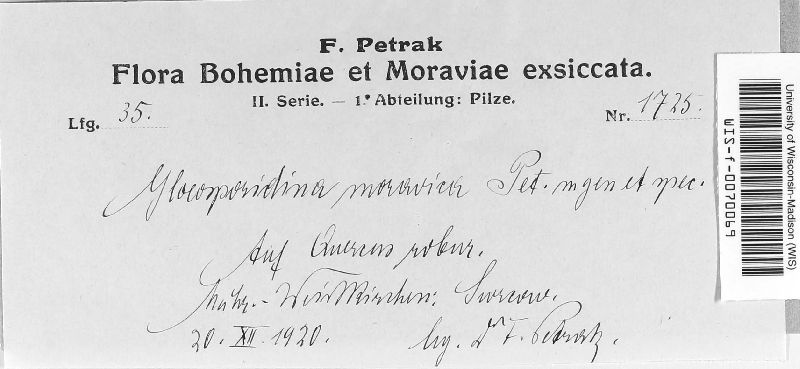 F. Petrak
Flora Bohemiae et Moraviae exsiccata.
II. Serie. — 1. Abteilung: Pilze.
Lfg. 35.
Nr. 1725.
Gloeosporidina moravica Pet. n gen et spec.
Auf Quercus robur.
Mähr.-Weisskirchen:
20. XII. 1920. lg. Dr F. Petrak.
University of Wisconsin-Madison (WIS)
WIS-f-0070069